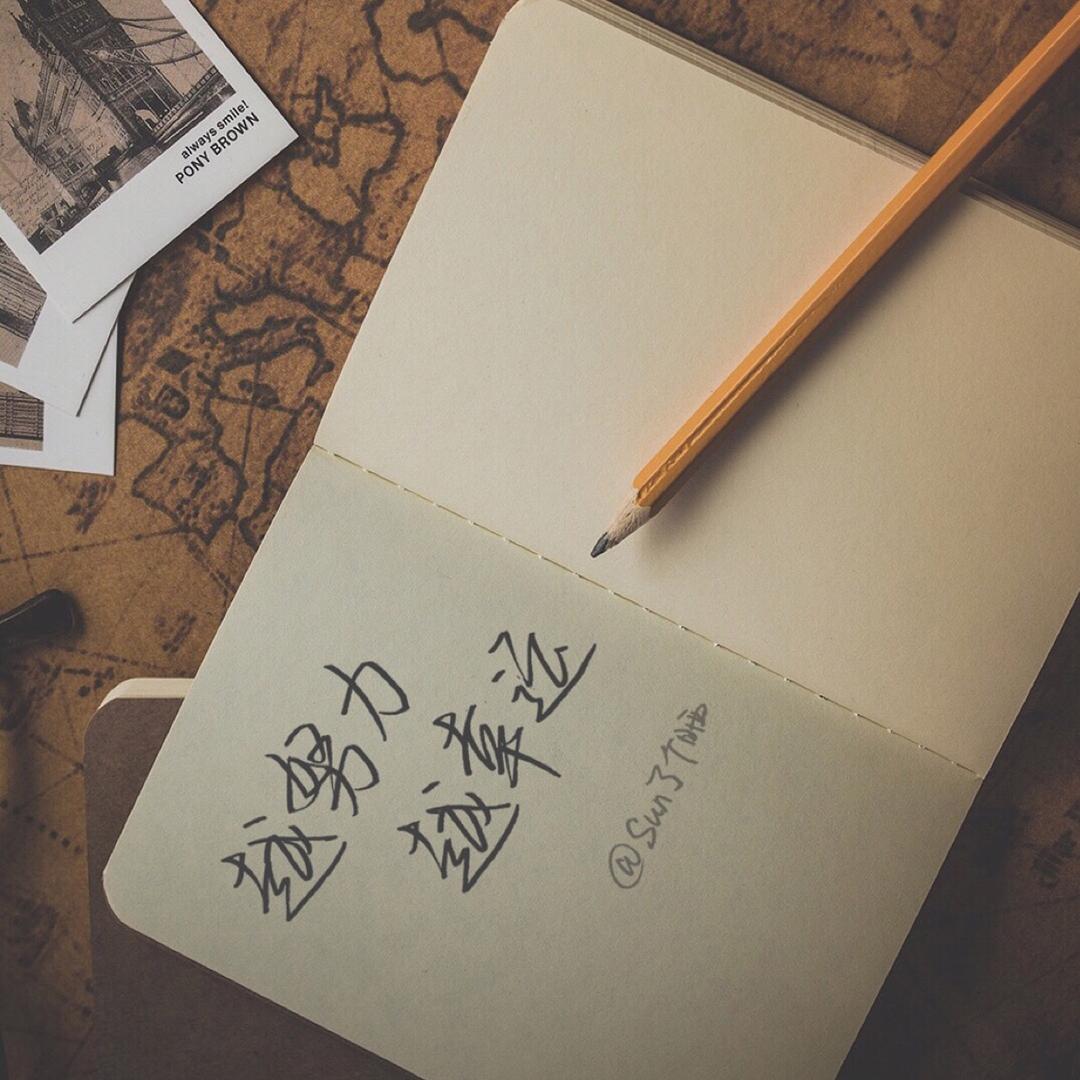 always smile!
PONY BROWN
越努力
越幸运
@Sun了个晒